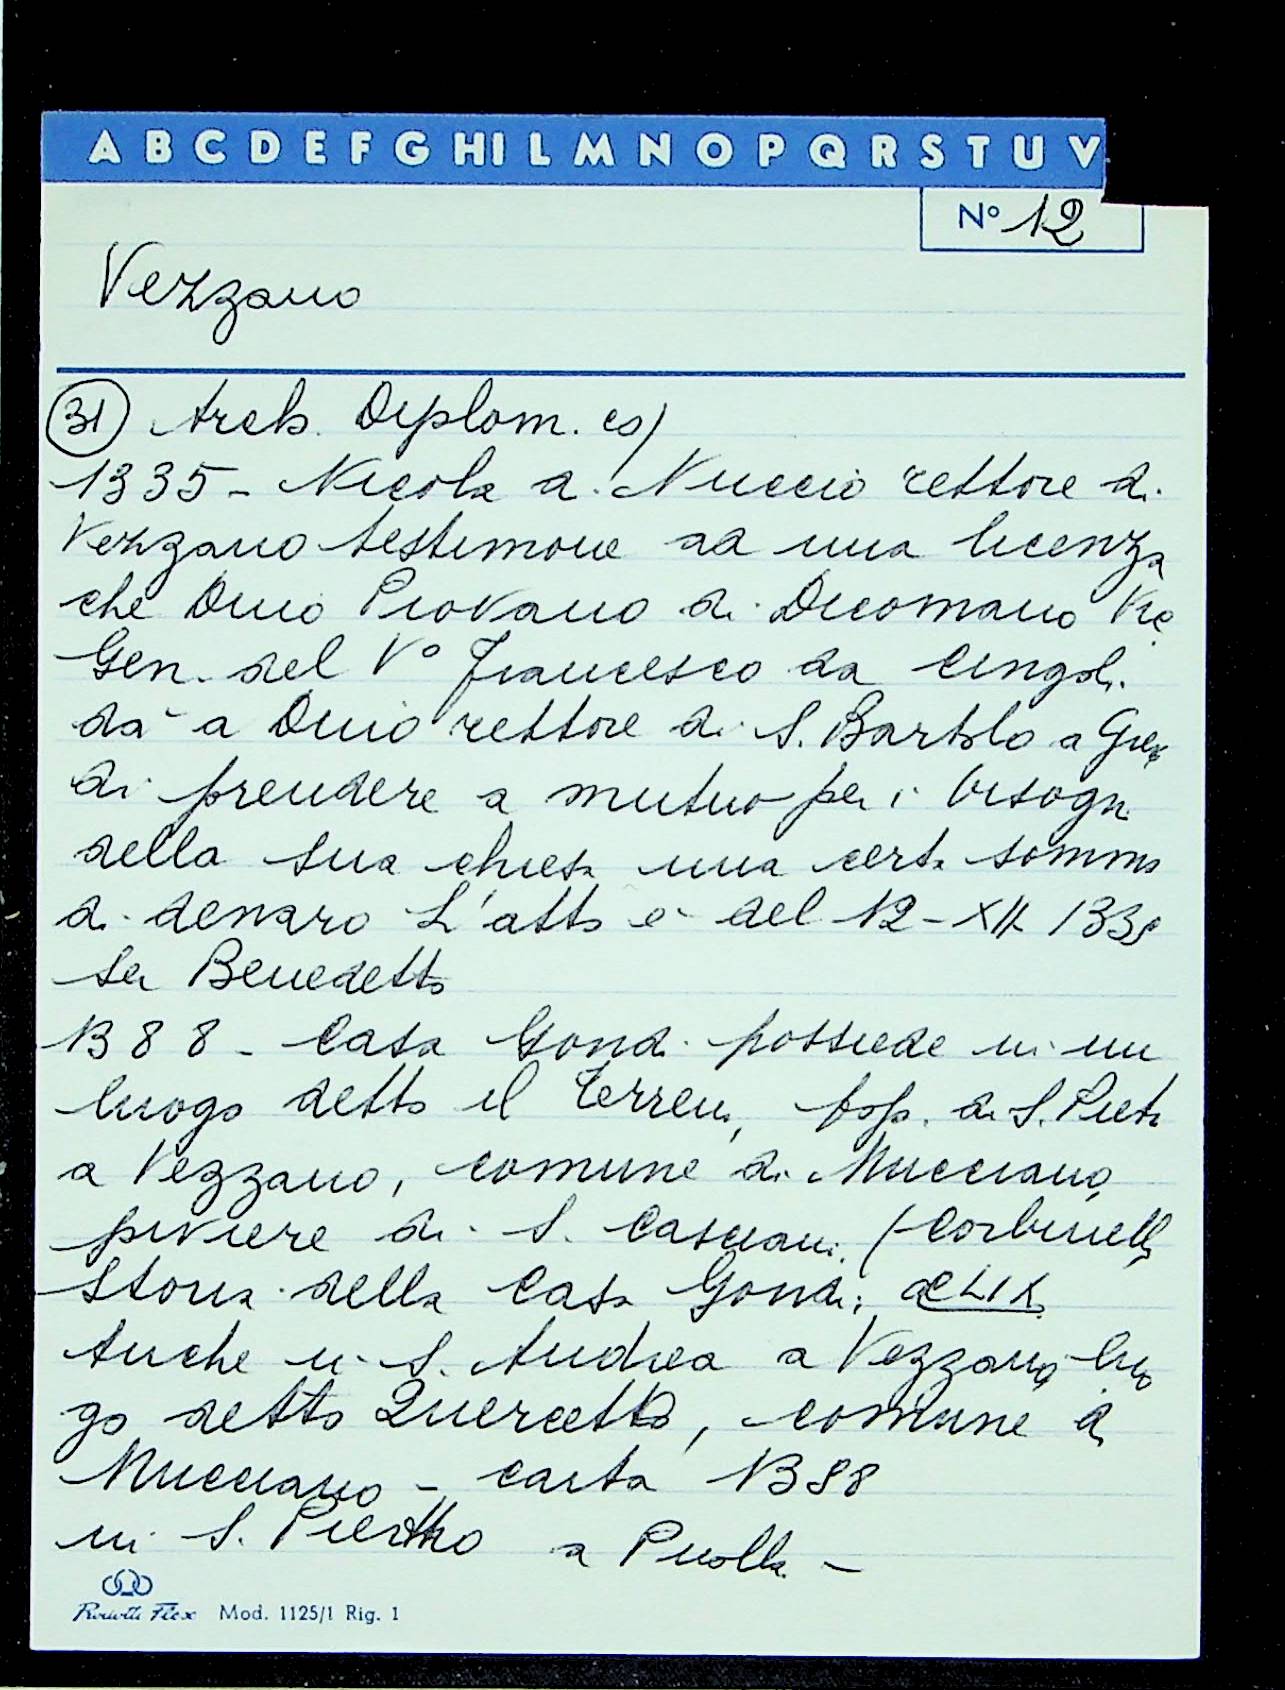 A B C D E F G HI L M N O P Q R S T U V
N° 12
Vezzano
31 Arch. Diplom. es)
1335 - Nicola di Nuccio rettore di
Vezzano testimone ad una licenza
che Dino Piovano di Dicomano Vic
Gen. del V° Francesco da Cingoli
dà a Dino rettore di S. Bartolo a
di prendere a mutuo per i bisogni
della sua chiesa una certa somma
di denaro L'atto è del 12-XII 1335
ser Benedetto
1388 - Casa Gondi possiede in un
luogo detto il Terreno, pop. di S. Pietro
a Vezzano, comune di Mucciano,
piviere di S. Casciano. (Corbinelli
Storia della Casa Gondi; CLIX
Anche in S. Andrea a Vezzano, luo
go detto Querceto, comune di
Mucciano - carta 1388
in S. Piertro a Pirolla -
Mod. 1125/1 Rig. 1